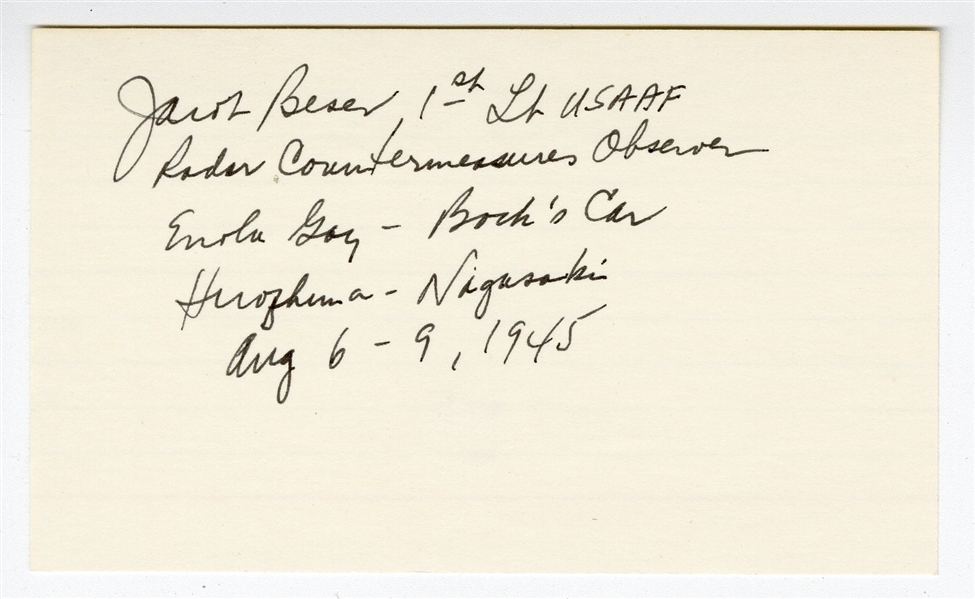 Jacob Beser, 1st Lt USAAF
Radar Countermeasures Observer
Enola Gay - Bock's Car
Hiroshima - Nagasaki
Aug 6 - 9, 1945